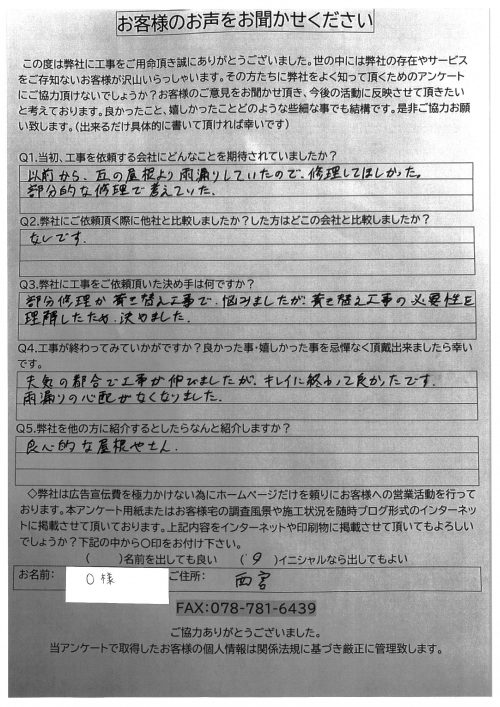 お客様のお声をお聞かせください
この度は弊社に工事をご用命頂き誠にありがとうございました。世の中には弊社の存在やサービス
をご存知ないお客様が沢山いらっしゃいます。その方たちに弊社をよく知って頂くためのアンケート
にご協力頂けないでしょうか？お客様のご意見をお聞かせ頂き、今後の活動に反映させて頂きたい
と考えております。良かったこと、嬉しかったことどのような些細な事でも結構です。是非ご協力お願
い致します。（出来るだけ具体的に書いて頂ければ幸いです）
Q1.当初、工事を依頼する会社にどんなことを期待されていましたか？
以前から、瓦の屋根より雨漏りしていたので、修理してほしかった。
部分的な修理で考えていた。
Q2.弊社にご依頼頂く際に他社と比較しましたか？した方はどこの会社と比較しましたか？
なしです。
Q3.弊社に工事をご依頼頂いた決め手は何ですか？
部分修理か葺き替え工事で、悩みましたが、葺き替え工事の必要性を
理解したため、決めました。
Q4.工事が終わってみていかがですか？良かった事・嬉しかった事を忌憚なく頂戴出来ましたら幸い
です。
天気の都合で工事が伸びましたが、キレイに終わって良かったです。
雨漏りの心配がなくなりました。
Q5.弊社を他の方に紹介するとしたらなんと紹介しますか？
良心的な屋根やさん。
◇弊社は広告宣伝費を極力かけない為にホームページだけを頼りにお客様への営業活動を行って
おります。本アンケート用紙またはお客様宅の調査風景や施工状況を随時ブログ形式のインターネッ
トに掲載させて頂いております。上記内容をインターネットや印刷物に掲載させて頂いてもよろしい
でしょうか？下記の中から〇印をお付け下さい。
（　　）名前を出しても良い　（　）イニシャルなら出してもよい
お名前：　O様　ご住所：　西宮
FAX：078-781-6439
ご協力ありがとうございました。
当アンケートで取得したお客様の個人情報は関係法規に基づき厳正に管理致します。